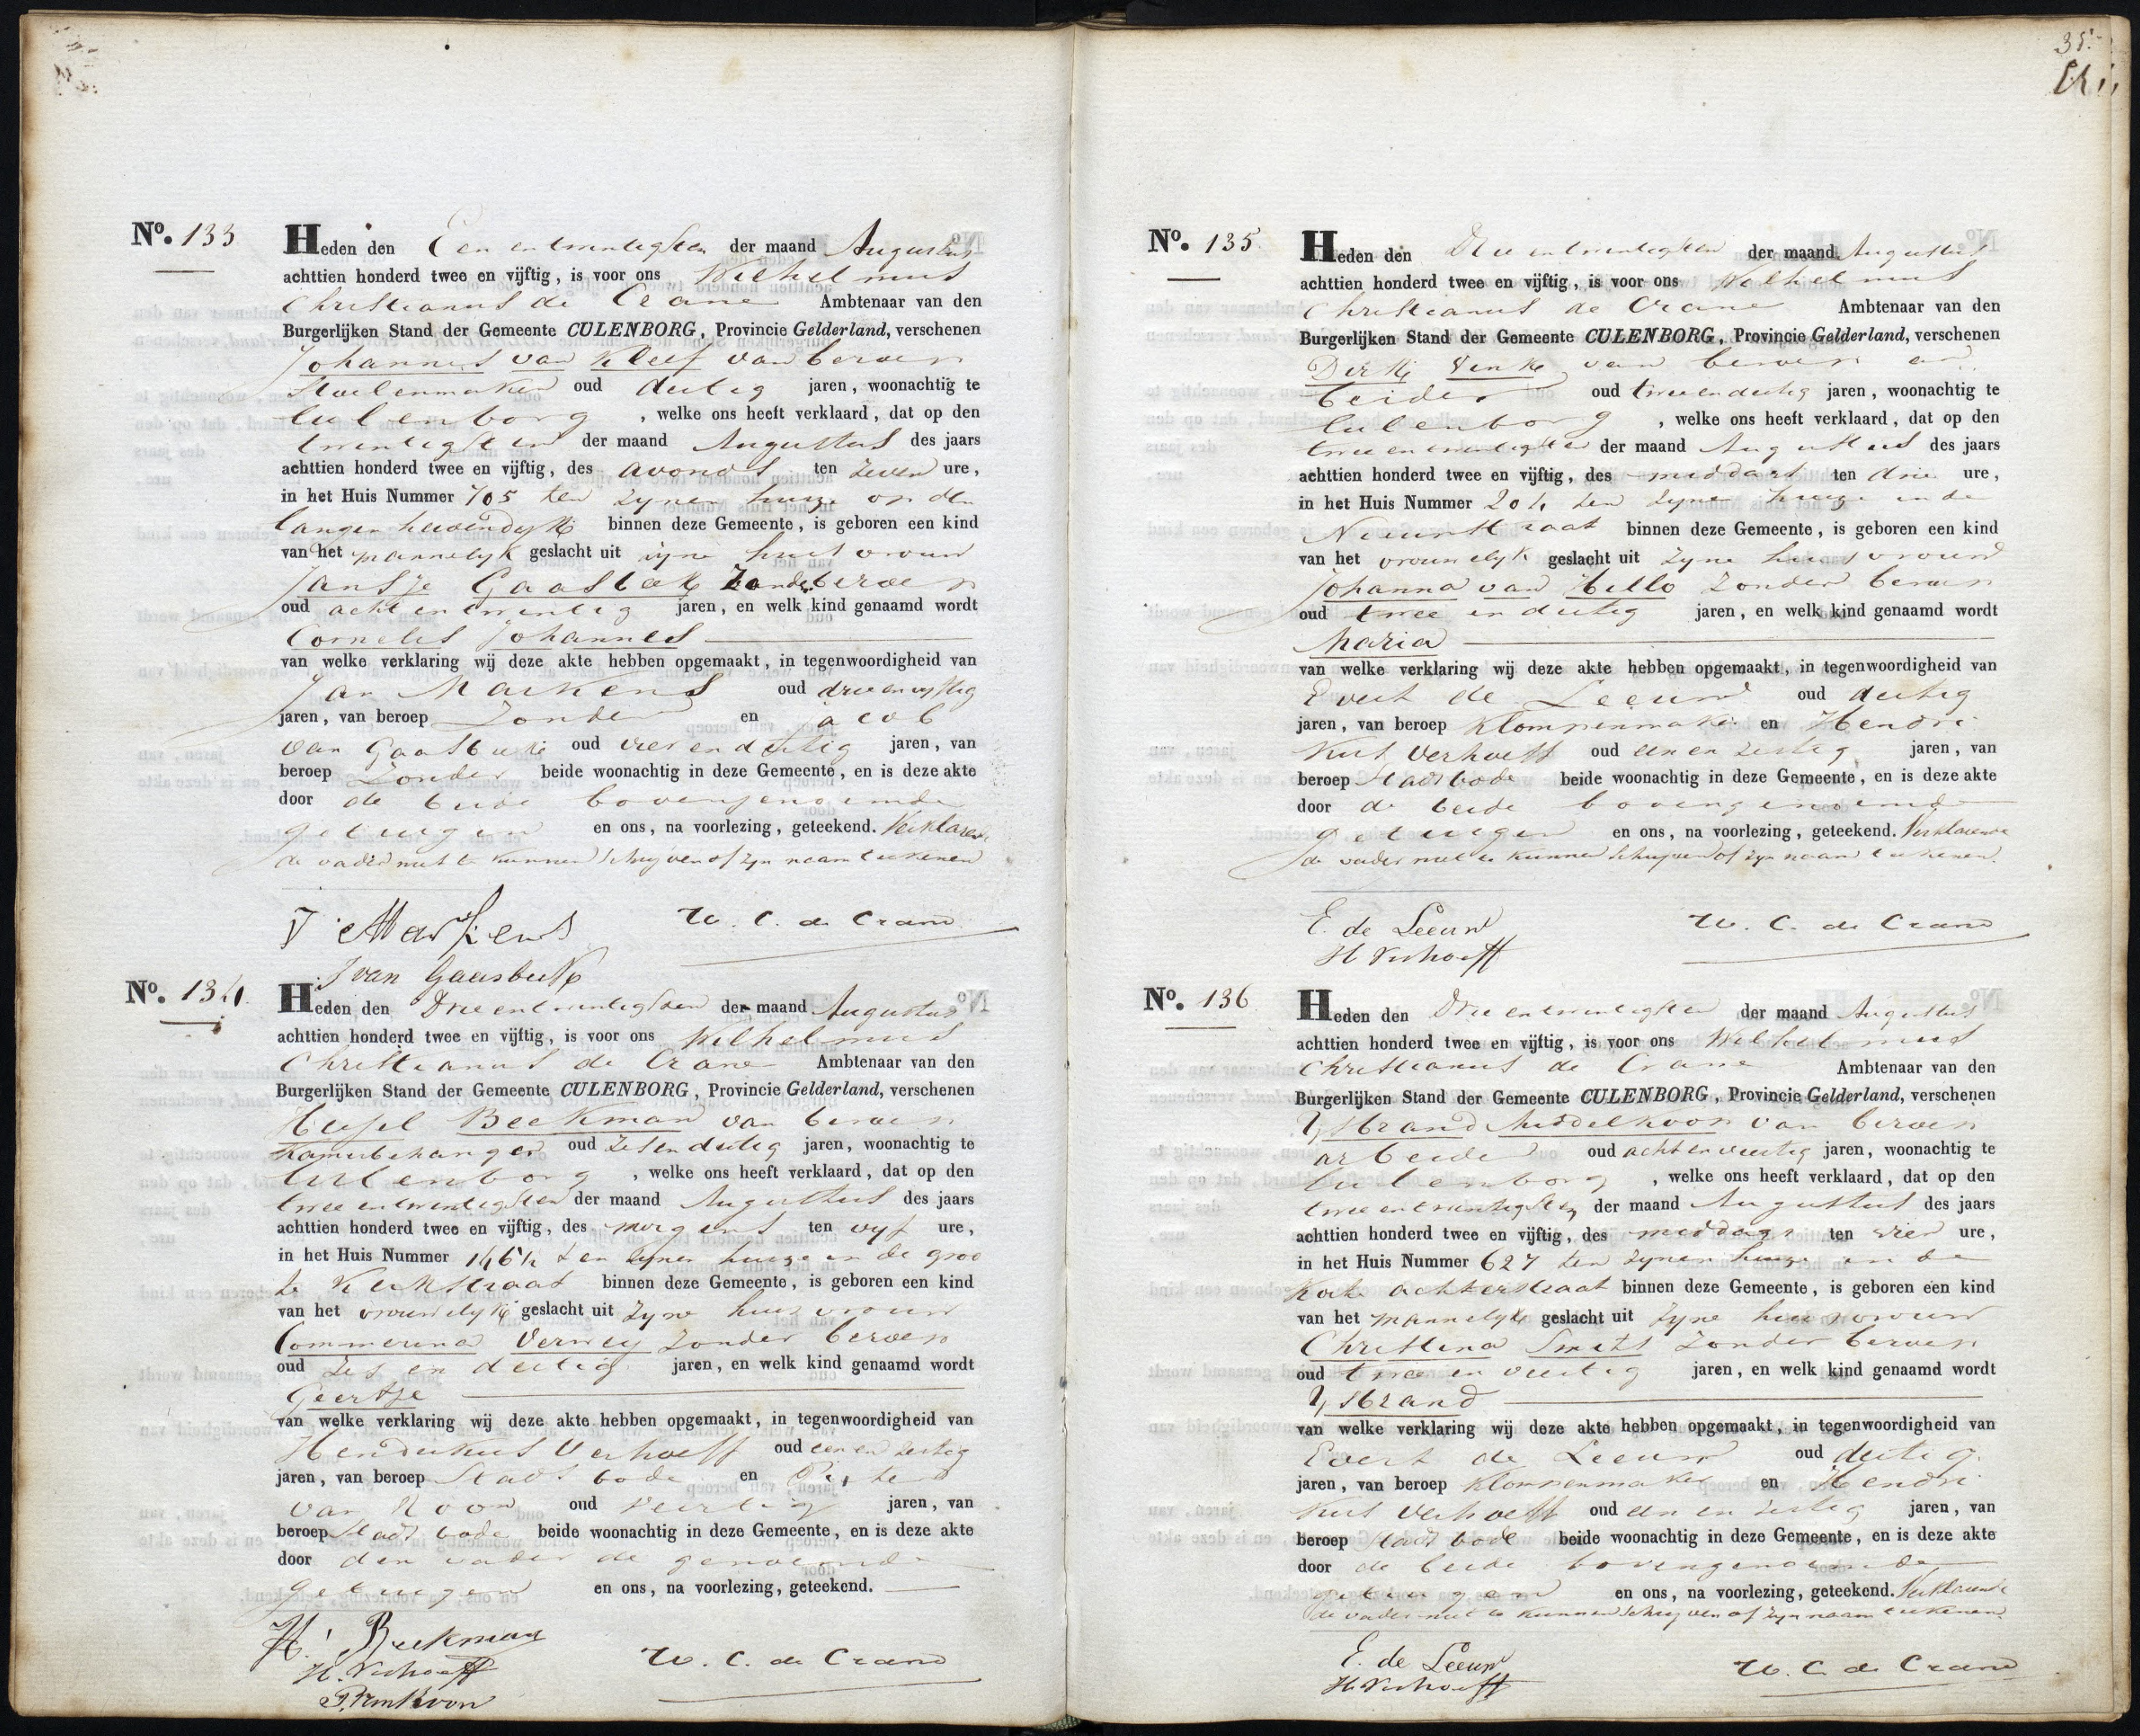 No. 133
Heden den Een en twintigsten der maand Augustus
achttien honderd twee en vijftig, is voor ons Wilhelmus
Christianus de Crane Ambtenaar van den
Burgerlijken Stand der Gemeente CULENBORG, Provincie Gelderland, verschenen
Johannes van Kleef van beroep
Stoelenmaker oud dertig jaren, woonachtig te
Culenborg, welke ons heeft verklaard, dat op den
twintigsten der maand Augustus des jaars
achttien honderd twee en vijftig, des avonds ten zeven ure,
in het Huis Nummer 705 ten zynen huize op den
langen havendyk binnen deze Gemeente, is geboren een kind
van het mannelyk geslacht uit zyne huisvrouw
Jansje Gaasbeek zonder beroep
oud acht en twintig jaren, en welk kind genaamd wordt
Cornelis Johannes
van welke verklaring wij deze akte hebben opgemaakt, in tegenwoordigheid van
Jan Markens oud drie en vyftig
jaren, van beroep Zonder en Jacob
van Gaasbeek oud vier en dertig jaren, van
beroep Zonder beide woonachtig in deze Gemeente, en is deze akte
door de beide bovengenoemde
getuigen en ons, na voorlezing, geteekend. Verklarende
de vader niet te kunnen schryven of zyn naam teekenen
J Markens W. C. de Crane
J van Gaasbeek
No. 134.
Heden den Drie en twintigsten der maand Augustus
achttien honderd twee en vijftig, is voor ons Wilhelmus
Christianus de Crane Ambtenaar van den
Burgerlijken Stand der Gemeente CULENBORG, Provincie Gelderland, verschenen
Beekman van beroep
Kamerbehanger oud Zes en dertig jaren, woonachtig te
Culenborg, welke ons heeft verklaard, dat op den
twee en twintigsten der maand Augustus des jaars
achttien honderd twee en vijftig, des morgens ten vyf ure,
in het Huis Nummer 1464 ten zynen huize in de groo
te Kerkstraat binnen deze Gemeente, is geboren een kind
van het vrouwelyk geslacht uit zyne huisvrouw
Commerina Verwey zonder beroep
oud zes en dertig jaren, en welk kind genaamd wordt
Geertje
van welke verklaring wij deze akte hebben opgemaakt, in tegenwoordigheid van
Hendrikus Verhoeff oud een en zestig
jaren, van beroep Stads bode en Pieter
van Roon oud veertig jaren, van
beroep Stads bode beide woonachtig in deze Gemeente, en is deze akte
door den vader de genoemde
getuigen en ons, na voorlezing, geteekend.
H. Beekman
H. Verhoeff W. C. de Crane
P. van Roon
35.
No. 135
Heden den Drie en twintigsten der maand Augustus
achttien honderd twee en vijftig, is voor ons Wilhelmus
Christianus de Crane Ambtenaar van den
Burgerlijken Stand der Gemeente CULENBORG, Provincie Gelderland, verschenen
Dirk Vink van beroep ar
beider oud twee en dertig jaren, woonachtig te
Culenborg, welke ons heeft verklaard, dat op den
twee en twintigsten der maand Augustus des jaars
achttien honderd twee en vijftig, des middags ten drie ure,
in het Huis Nummer 204 ten zyne huize in de
Nieuwstraat binnen deze Gemeente, is geboren een kind
van het vrouwelyk geslacht uit zyne huisvrouw
Johanna van Hello zonder beroep
oud twee en dertig jaren, en welk kind genaamd wordt
Maria
van welke verklaring wij deze akte hebben opgemaakt, in tegenwoordigheid van
Evert de Leeuw oud dertig
jaren, van beroep Klompenmaker en Hendri
kus Verhoeff oud een en zestig jaren, van
beroep Stads bode beide woonachtig in deze Gemeente, en is deze akte
door de beide bovengenoemde
getuigen en ons, na voorlezing, geteekend. Verklarende
de vader niet te kunnen schryven of zyn naam teekenen.
E. de Leeuw W. C. de Crane
H Verhoeff
No. 136
Heden den Drie en twintigsten der maand Augustus
achttien honderd twee en vijftig, is voor ons Wilhelmus
Christianus de Crane Ambtenaar van den
Burgerlijken Stand der Gemeente CULENBORG, Provincie Gelderland, verschenen
Ysbrand Middelkoop van beroep
arbeider oud acht en veertig jaren, woonachtig te
Culenborg, welke ons heeft verklaard, dat op den
twee en twintigsten der maand Augustus des jaars
achttien honderd twee en vijftig, des middags ten vier ure,
in het Huis Nummer 627 ten zynen huize in de
Korte achterstraat binnen deze Gemeente, is geboren een kind
van het mannelyk geslacht uit zyne huisvrouw
Christina Smits zonder beroep
oud twee en veertig jaren, en welk kind genaamd wordt
Ysbrand
van welke verklaring wij deze akte hebben opgemaakt, in tegenwoordigheid van
Evert de Leeuw oud dertig
jaren, van beroep Klompenmaker en Hendri
kus Verhoeff oud een en zestig jaren, van
beroep Stads bode beide woonachtig in deze Gemeente, en is deze akte
door de beide bovengenoemde
getuigen en ons, na voorlezing, geteekend. Verklarende
de vader niet te kunnen schryven of zyn naam teekenen
E. de Leeuw W. C. de Crane
H. Verhoeff